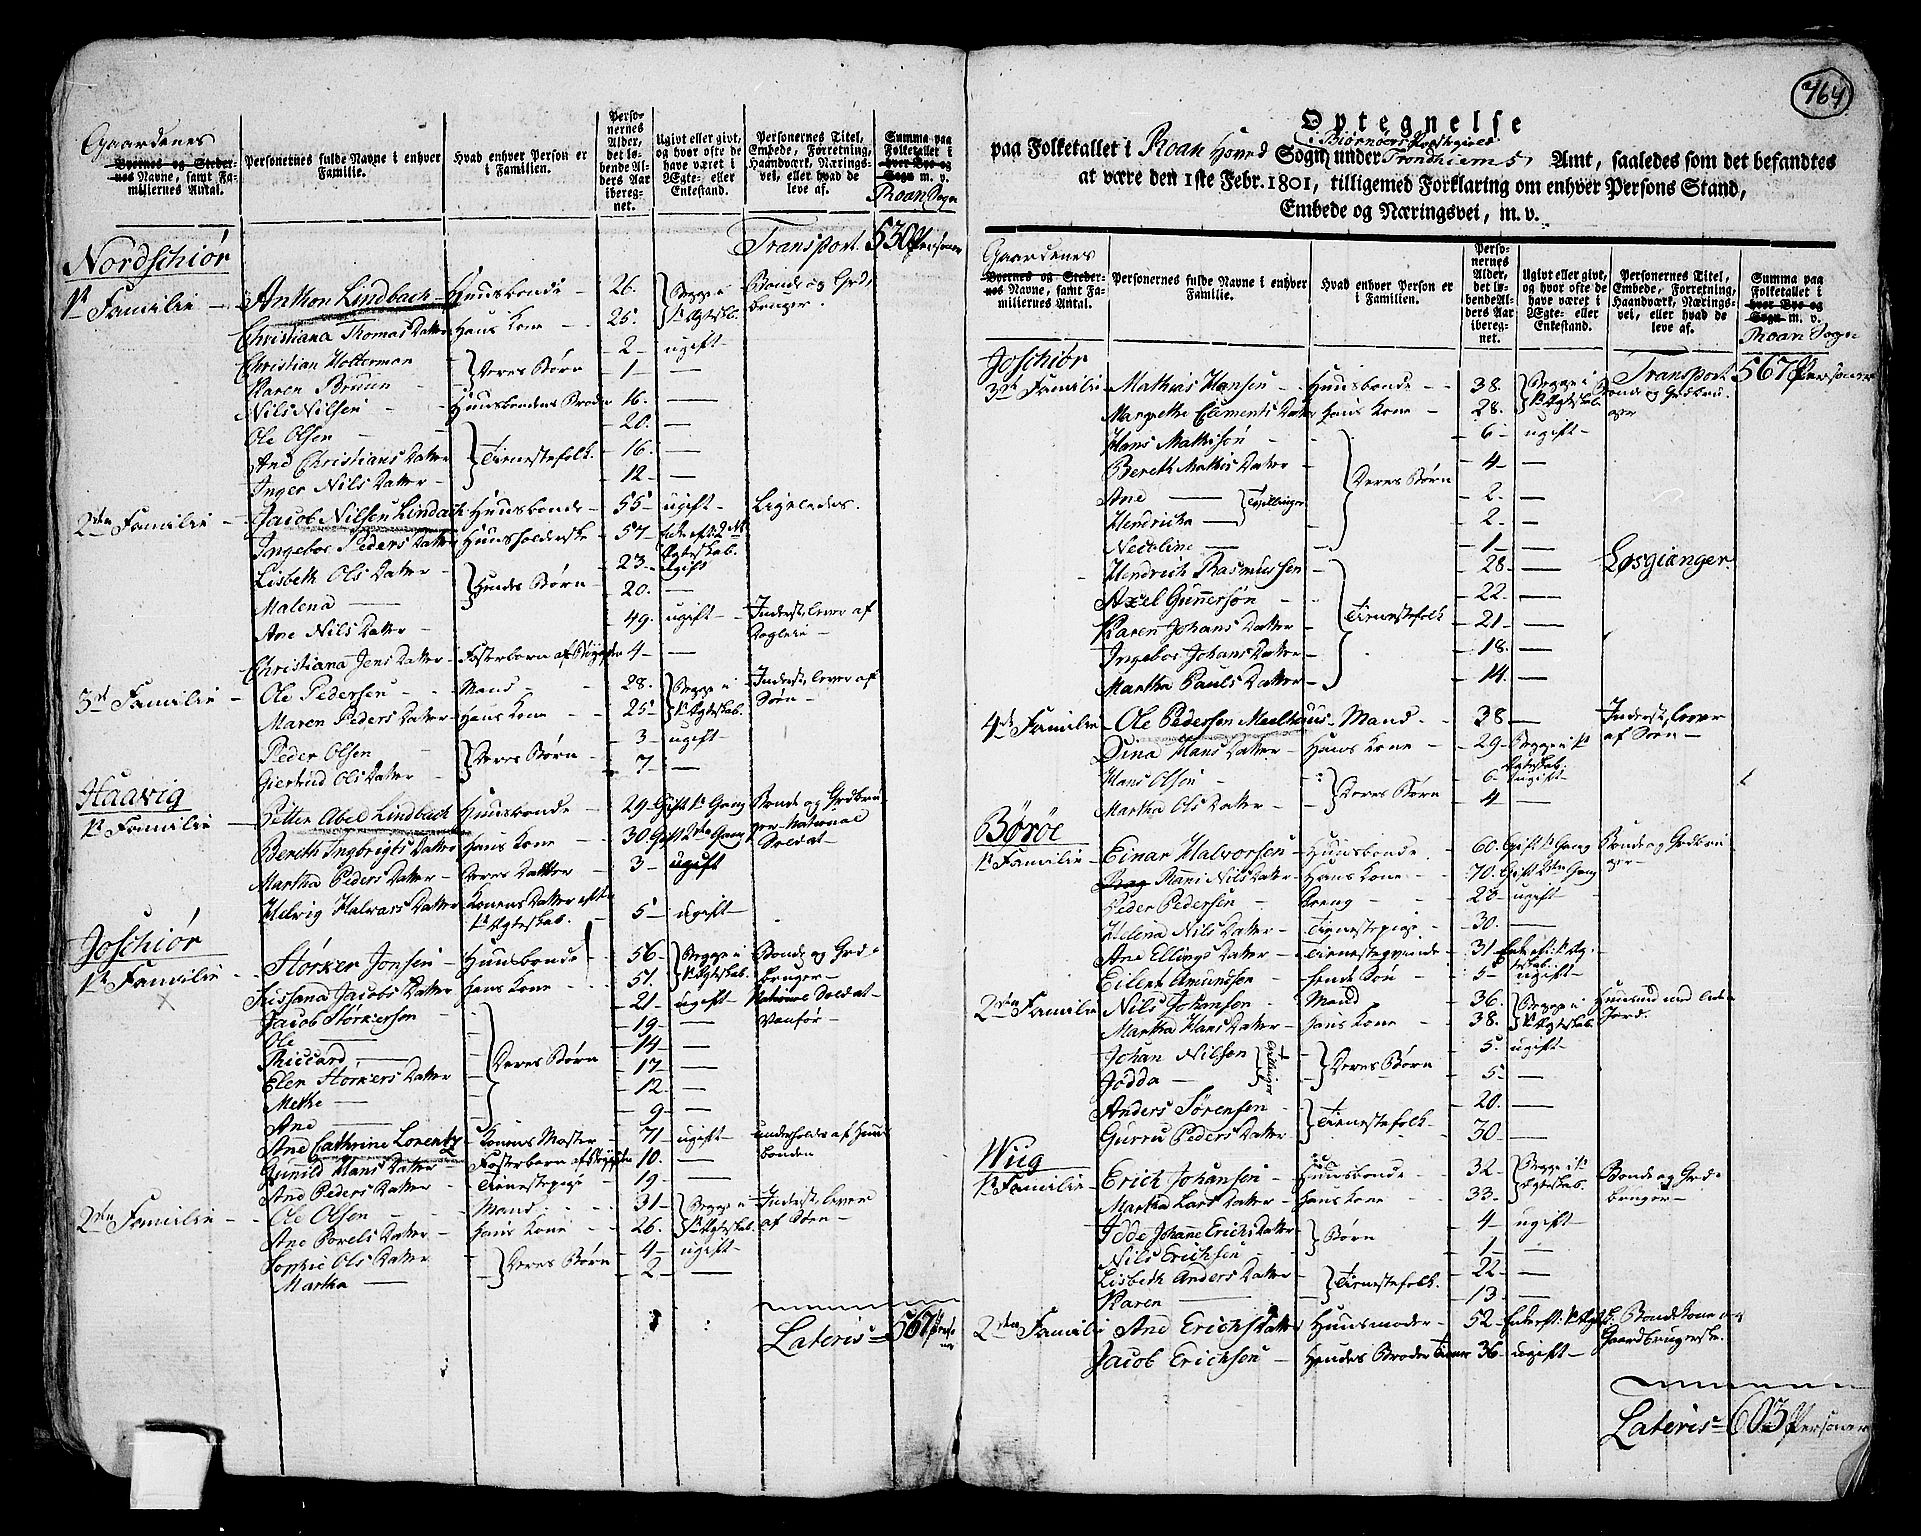 Gaardenes
Byernes og Steder-
nes Navne, samt Fa-
miliernes Antal.
Personernes fulde Navne i enhver
Familie.
Hvad enhver Person er
i Familien.
Perso-
nernes
Alder,
det lø-
bende Al-
ders Aar
iberegnet.
Ugivt eller givt,
og hvor ofte de
have været i
Ægte- eller
Enkestand.
Personernes Titel,
Embede, Forretning,
Haandværk, Nærings-
vei, eller hvad de
leve af.
Summa paa
Folketallet i
hver Bye og
Sogn m. v.
Roan Sogn
Transport 530 Personer
Nordschiør
1te Familie - Anthon Lindbach - Huusbonde - 26. Begge i 1te Ægteskb. Bonde og Grd, bruger.
Christiana Thomas Datter Hans Kone - 25.
Christian Holterman - Deres Børn - 2 - ugift -
Karen Bruun - 1 -
Nils Nilsen - Huusbondens Broder 16. -
Ole Olsen - Tienestefolk. 20. -
Ane Christians Datter 16. -
Inger Nils Datter - 12 -
2den Familie - Jacob Nilsen Lindach Huusbonde - 55 ugift - Ligeledes.
Ingebor Peders Datter Huusholderske - 57 - Enke eft: 2det Ægteskab.
Lisbeth Ols Datter - Hendes Børn - 23. ugift
Malena - 20. -
Ane Nils Datter - 49. ugift - Inderst, lever af Dagleie -
Christiana Jens Datter - Fosterbarn af Bøygden 4 -
3die Familie - Ole Pedersen - Mand - 28. Begge i 1te Ægteskab. Inderst, lever af Søen -
Maren Peders Datter Hans Kone - 25
Peder Olsen - Deres Børn - 3 - ugift
Giertrud Ols Datter - 7 -
Haavig
1te Familie - Petter Abel Lindbach Huusbonde - 29 - Gift 1te Gang Bonde og Grdbru-
ger - National
Soldat -
Bereth Ingbrigts Datter Hans Kone - 30 Gift 2den Gang
Martha Peders Datter - Deres Datter - 3 - ugift
Helvig Halvars Datter Konens Datter efter 1te Ægteskab. 5 - ugift -
Joschiør
1te Familie - Størker Jonsen - Huusbonde - 56 - Begge i 1te Ægteskab. Bonde og Grd-
bruger -
Hans Kone - 51.
Jacob Størkersen - Deres Børn - 21 - ugift - National Soldat -
Ole - 19 - Vanfør -
Riccard - 14 -
Elen Størkers Datter 17 -
Methe - 12 -
Ane - 9 -
Ane Cathrine Lorentz Konens Moster - 71 - ugift - underholdes af Huus-
bonden
Gunnild Hans Datter - Fosterbarn af Bøygden 10. -
Ane Peders Datter - Tienestepige - 19 -
2den Familie - Ole Olsen - Mand - 31 - Begge i 1te Ægteskab. Inderst, lever
af Søen -
Ane Povels Datter - Hans Kone - 26.
Sophie Ols Datter - Deres Børn - 4 - ugift -
Martha - 2 -
Lateris - 567 Personer
464
Optegnelse
paa Folketallet i Roan Hoved Sogn i Biørnøers Præstegield under Trondhiems Amt, saaledes som det befandtes
at være den 1ste Febr. 1801, tilligemed Forklaring om enhver Persons Stand,
Embede og Næringsvei, m. v.
Gaardenes
Byernes og Steder-
nes Navne, samt Fa-
miliernes Antal.
Personernes fulde Navne i enhver
Familie.
Hvad enhver Person er
i Familien.
Perso-
nernes
Alder,
det lø-
bende Al-
ders Aar
ibereg-
net.
Ugivt eller givt,
og hvor ofte de
have været i
Ægte- eller
Enkestand.
Personernes Titel,
Embede, Forretning,
Haandværk, Nærings-
vei, eller hvad de
leve af.
Summa paa
Folketallet i
hver Bye og
Sogn m. v.
Roan Sogn
Transport 567 Personer
Joschiør
3die Familie - Mathias Hansen - Huusbonde - 38. Begge i 1te Ægteskab. Bonde og Grdbru-
ger
Margrethe Clements Datter Hans Kone - 28.
Hans Mathisøn - Deres Børn - 6 - ugift -
Bereth Mathis Datter 4 -
Ane - Tvillinger 2. -
Hendricha - 2 -
Nicoline - 1 -
Hendrich Rasmussen - Tienestefolk 28. - Løsgiænger.
Axel Gunnersøn - 22. -
Karen Johans Datter 21 -
Ingebor Johans Datter - 18. -
Martha Pauls Datter - 14. -
4de Familie - Ole Pedersen Meelhuus - Mand - 38 - Inderst, lever
af Søen -
Dina Hans Datter - Hans Kone - 29 - Begge i 1te Ægteskab.
Hans Olsen - Deres Børn - 6 - ugift -
Martha Ols Datter - 4 -
Børøe
1te Familie - Einar Halvorsen - Huusbonde - 60. Gift 1te Gang Bonde og Grdbru-
ger -
Rani Nils Datter - Hans Kone - 70. Gift 2den Gang
Peder Pedersen - Dreng - 23 - ugift -
Helena Nils Datter - Tienestepige - 30. -
Ane Ellings Datter - Tienestegvinde - 31 Enke eft: 1te Æg-
teskab.
Eilert Amundsen - hendes Søn - 5 - ugift -
2den Familie - Nils Johansen - Mand - 36. Begge i 1te Ægteskab. Huusmd med liden
Jord.
Martha Hans Datter - Hans Kone - 38.
Johan Nilsen Tvillinger Deres Børn - 5. ugift -
Jødda - 5 -
Anders Sørensen - Tienestefolk - 20. -
Gurru Peders Datter 30 -
Wiig
1te Familie - Erich Johansen - Huusbonde - 32 - Begge i 1te Ægteskab. Bonde og Grd-
bruger -
Martha Lars Datter - Hans Kone - 33.
Idde Johanne Erichs Datter Børn - 4 - ugift -
Nils Erichsen - 1 -
Lisbeth Anders Datter - Tienestefolk. 22 -
Karen - 13 -
2den Familie Ane Erichs Datter Huusmoder - 52 - Enke eft: 1te Ægtsk. Bondekone og
Gaardbrugerske.
Jacob Erichsen - Hendes Broder 36 - ugift -
Lateris - 603 Personer